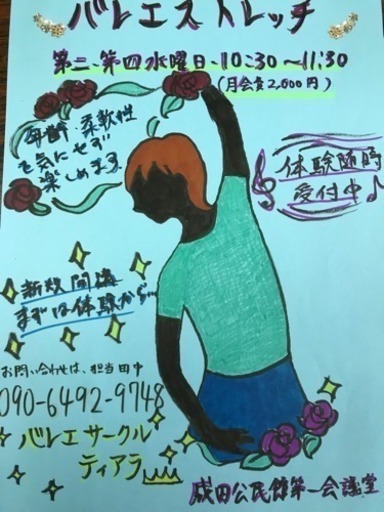 バレエストレッチ
第二、第四水曜日、10:30〜11:30
(月会費2,000円)
年齢・柔軟性
を気にせず
楽しめます
体験随時
受付中
新規開講
まずは体験から…
お問い合わせは、担当田中
090-6492-9748
バレエサークル
ティアラ
成田公民館第一会議室